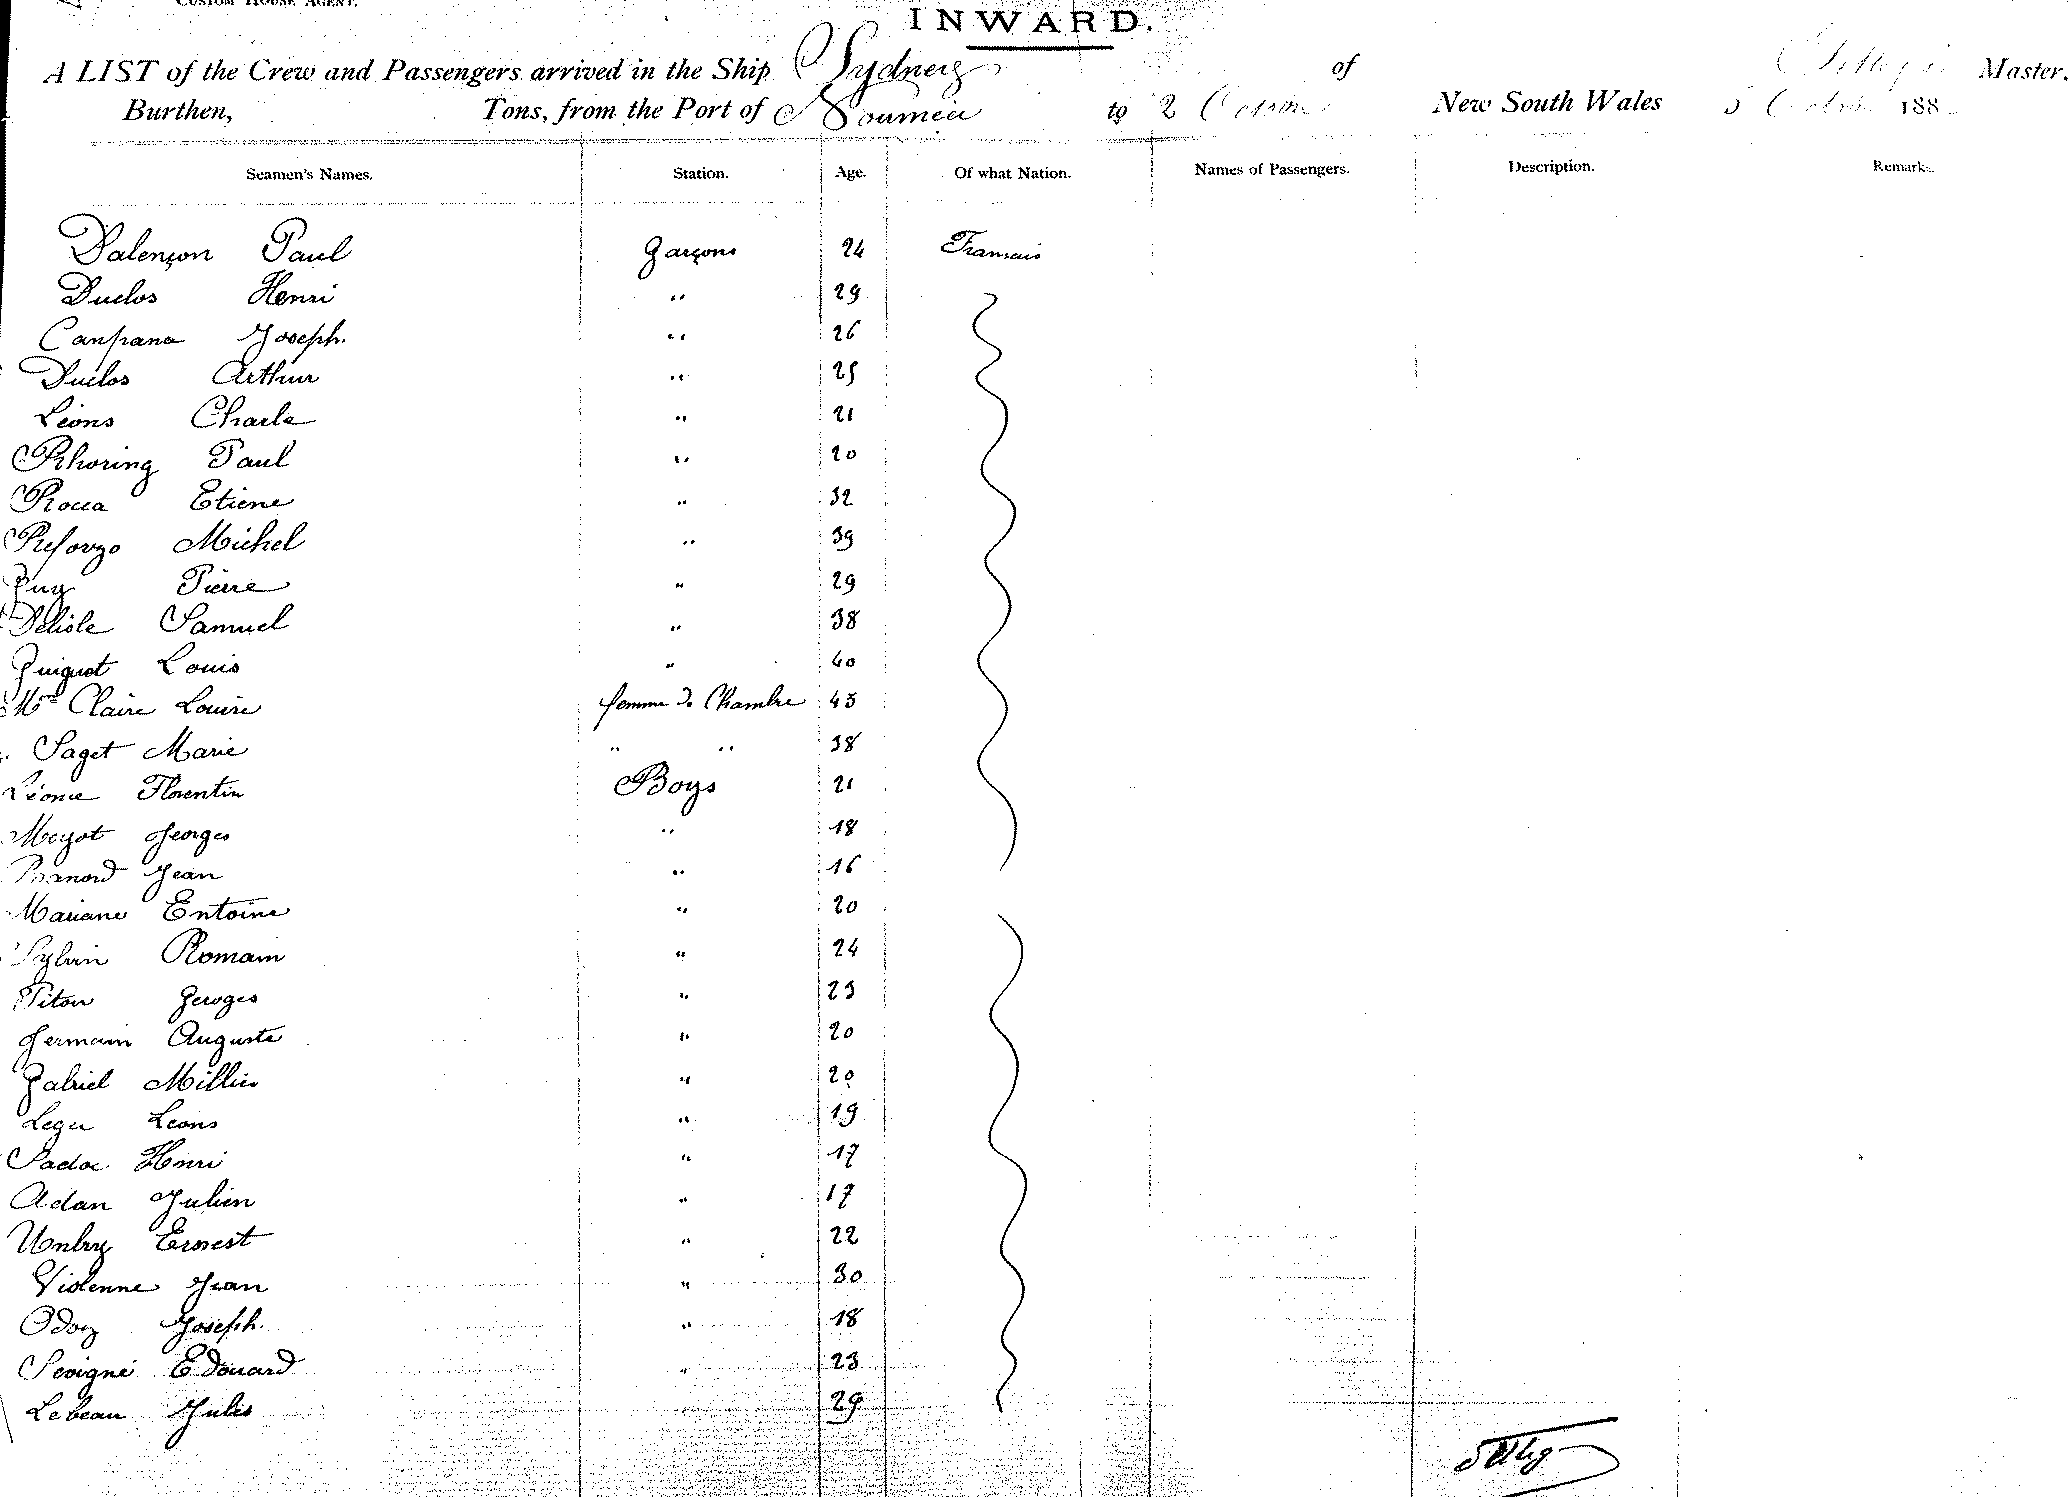 CUSTOM HOUSE AGENT.
INWARD.
A LIST of the Crew and Passengers arrived in the Ship Sydney of Master.
Burthen, Tons, from the Port of Noumea to New South Wales 5 188
Seamen's Names. Station. Age. Of what Nation. Names of Passengers. Description. Remarks.
Dalençon Paul Garçons 24 Francais
Duclos Henri " 29
Canpana Joseph. " 26
Duclos Arthur " 25
Léons Charle " 21
Rhoring Paul " 20
Rocca Etiene " 32
Michel " 39
Puy Pierre " 29
Delisle Samuel " 38
Guiguet Louis " 40
Me Claire Louise femme de Chambre 43
Saget Marie " " 38
Léonce Florentin Boys 21
Georges " 18
Jean " 16
Mariane Entoine " 20
Sylvin Romain " 24
Piton Georges " 23
Germain Auguste " 20
Gabriel Millien " 20
Leger Leons " 19
Sadoc Henri " 17
Adan Julien " 17
Ernest " 22
Violenne Jean " 30
Odoy Joseph. " 18
Sevigné Edouard " 23
Lebeau Jules " 29